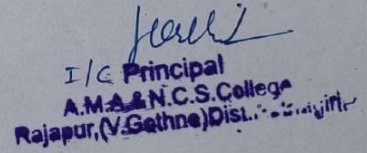 I/C Principal
A.M.A.& N.C.S. College
Rajapur,(V.Gothne)Dist.